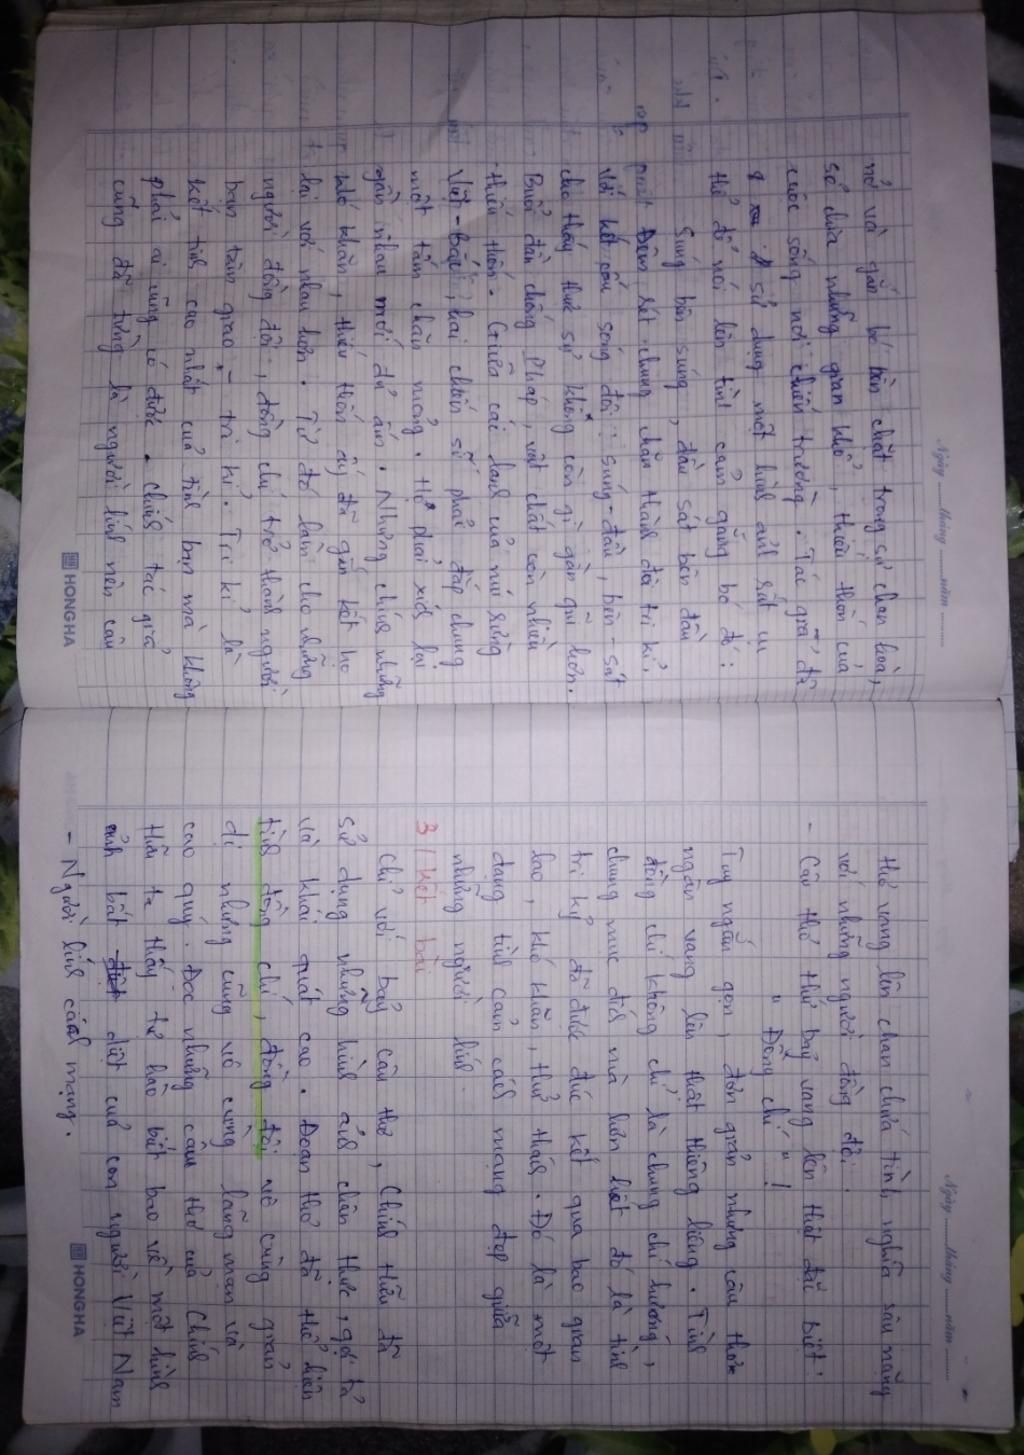 Ngày ......... tháng ......... năm .........
nở và gắn bó bền chặt trong sự chan hoà,
sẻ chia những gian khổ, thiếu thốn của
cuộc sống nơi chiến trường. Tác giả đã
sử dụng một hình ảnh rất cụ
thể để nói lên tình cảm gắng bó đó:
Súng bên súng, đầu sát bên đầu
Đêm rét chung chăn thành đôi tri kỉ.
Với kết cấu song đôi: súng-đầu, bên-sát
cho thấy thực sự không còn gì gần gũi hơn.
Buổi đầu chống Pháp, vật chất còn nhiều
thiếu thốn. Giữa cái lạnh của núi rừng
Việt-Bắc, hai chiến sĩ phải đắp chung
một tấm chăn mỏng. Họ phải xích lại
gần nhau mới đủ ấm. Nhưng chính những
khó khăn, thiếu thốn ấy đã gắn kết họ
lại với nhau hơn. Từ đó làm cho những
người đồng đội, đồng chí trở thành người
bạn tâm giao, - tri kỉ. Tri kỉ là
kết tinh cao nhất của tình bạn mà không
phải ai cũng có được. Chính tác giả
cũng đã từng là người lính nên câu
HONG HA
Ngày ......... tháng ......... năm .........
thơ vang lên chan chứa tình, nghĩa sâu nặng
với những người đồng đội.
- Câu thơ thứ bảy vang lên thật đặc biệt:
" Đồng chí " !
Tuy ngắn gọn, đơn giản nhưng câu thơ
ngân vang lên thật thiêng liêng. Tình
đồng chí không chỉ là chung chí hướng,
chung mục đích mà hơn hết đó là tình
tri kỷ đã được đúc kết qua bao gian
lao, khó khăn, thử thách. Đó là một
dạng tình cảm cách mạng đẹp giữa
những người lính.
3/ Kết bài
Chỉ với bảy câu thơ, Chính Hữu đã
sử dụng những hình ảnh chân thực, gợi tả
và khái quát cao. Đoạn thơ đã thể hiện
tình đồng chí, đồng đội vô cùng giản
dị nhưng cũng vô cùng lãng mạn và
cao quý. Đọc những câu thơ của Chính
Hữu ta thấy tự hào biết bao về một hình
ảnh bất diệt của con người Việt Nam
- Người lính cách mạng.
HONG HA